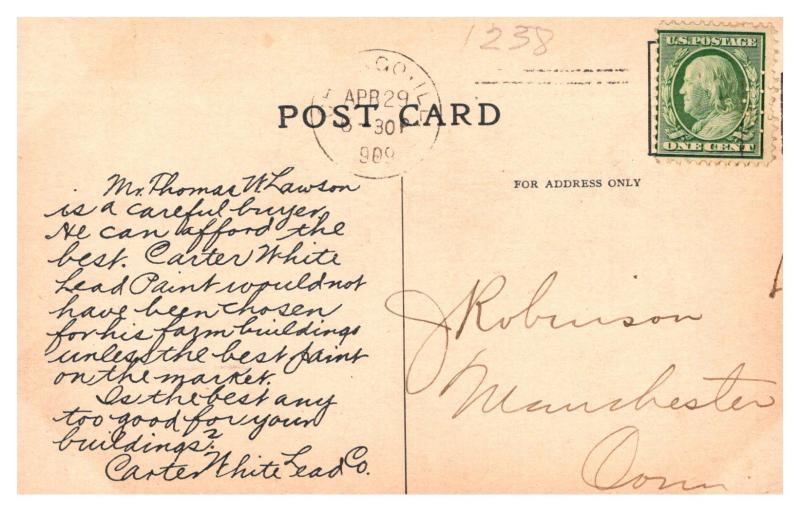 1238
U.S. POSTAGE
ONE CENT
GO, IL
APR 29
30P
909
POST CARD
FOR ADDRESS ONLY
Mr. Thomas W. Lawson
is a careful buyer.
He can afford the
best. Carter White
Lead Paint would not
have been chosen
for his farm buildings
unless the best paint
on the market.
Is the best any
too good for your
buildings?
Carter White Lead Co.
J Robinson
Manchester
Conn